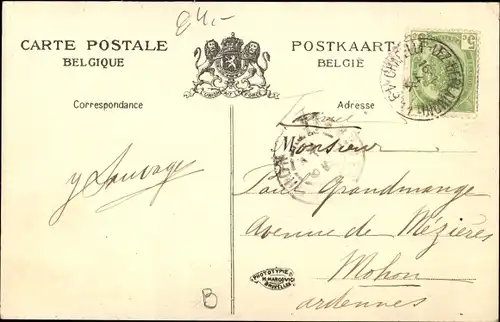 84.-
CARTE POSTALE
BELGIQUE
POSTKAART
BELGIË
Correspondance
Adresse
Monsieur
y Sauvage
Paul Grandmange
Avenue de Mézières
Mohon
ardennes
PHOTOTYPIE
M. MARCOVICI
BRUXELLES
B
5